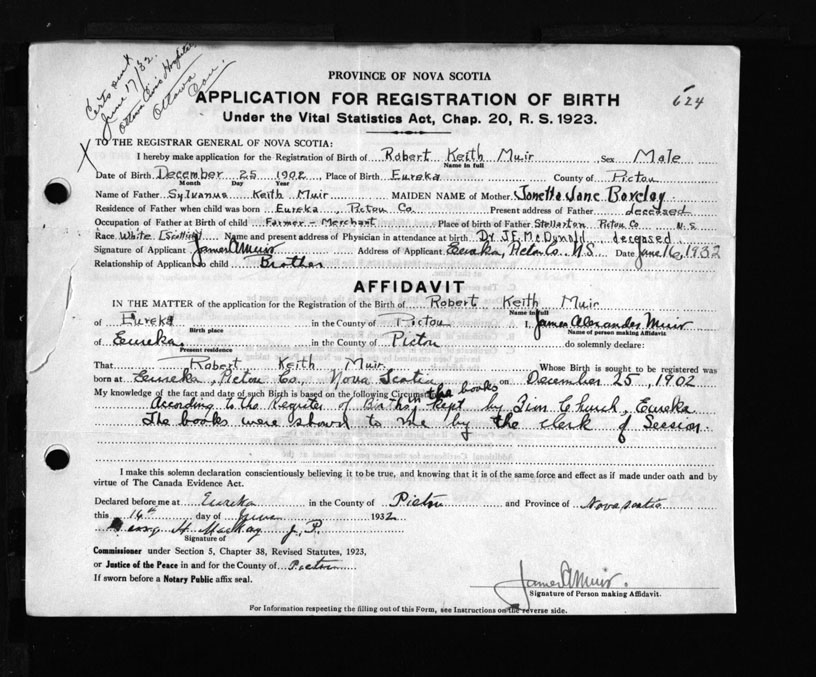 Certs sent
June 17/32.
Ottawa Civic Hospital
Ottawa
624
PROVINCE OF NOVA SCOTIA
APPLICATION FOR REGISTRATION OF BIRTH
Under the Vital Statistics Act, Chap. 20, R. S. 1923.
TO THE REGISTRAR GENERAL OF NOVA SCOTIA:
X
I hereby make application for the Registration of Birth of Robert Keith Muir Sex Male
Name in full
Date of Birth December 25 1902 Place of Birth Eureka County of Pictou
Month Day Year
Name of Father Sylvanus Keith Muir MAIDEN NAME of Mother Janetta Jane Barclay
Residence of Father when child was born Eureka, Pictou Co. Present address of Father deceased
Occupation of Father at Birth of child Farmer - Merchant Place of birth of Father Stellarton Pictou Co N.S
Race White [Scottish] Name and present address of Physician in attendance at birth Dr J E McDonald deceased
Signature of Applicant James A Muir Address of Applicant Eureka, Pictou Co. N.S Date June 16, 1932
Relationship of Applicant to child Brother
AFFIDAVIT
IN THE MATTER of the application for the Registration of the Birth of Robert Keith Muir
Name in full
of Eureka in the County of Pictou I, James Alexander Muir
Birth place Name of person making Affidavit
of Eureka in the County of Pictou do solemnly declare:
Present residence
That Robert Keith Muir Whose Birth is sought to be registered was
born at Eureka, Pictou Co., Nova Scotia on December 25, 1902
My knowledge of the fact and date of such Birth is based on the following Circumstances
in the books
According to the Register of Births kept by Zion Church, Eureka
The books were shown to me by the clerk of Session.
I make this solemn declaration conscientiously believing it to be true, and knowing that it is of the same force and effect as if made under oath and by
virtue of The Canada Evidence Act.
Declared before me at Eureka in the County of Pictou and Province of Nova Scotia
this 16th day of June 1932
George H MacKay J. P.
Signature of
Commissioner under Section 5, Chapter 38, Revised Statutes, 1923,
or Justice of the Peace in and for the County of Pictou
If sworn before a Notary Public affix seal.
James A Muir.
Signature of Person making Affidavit.
For Information respecting the filling out of this Form, see Instructions on the reverse side.